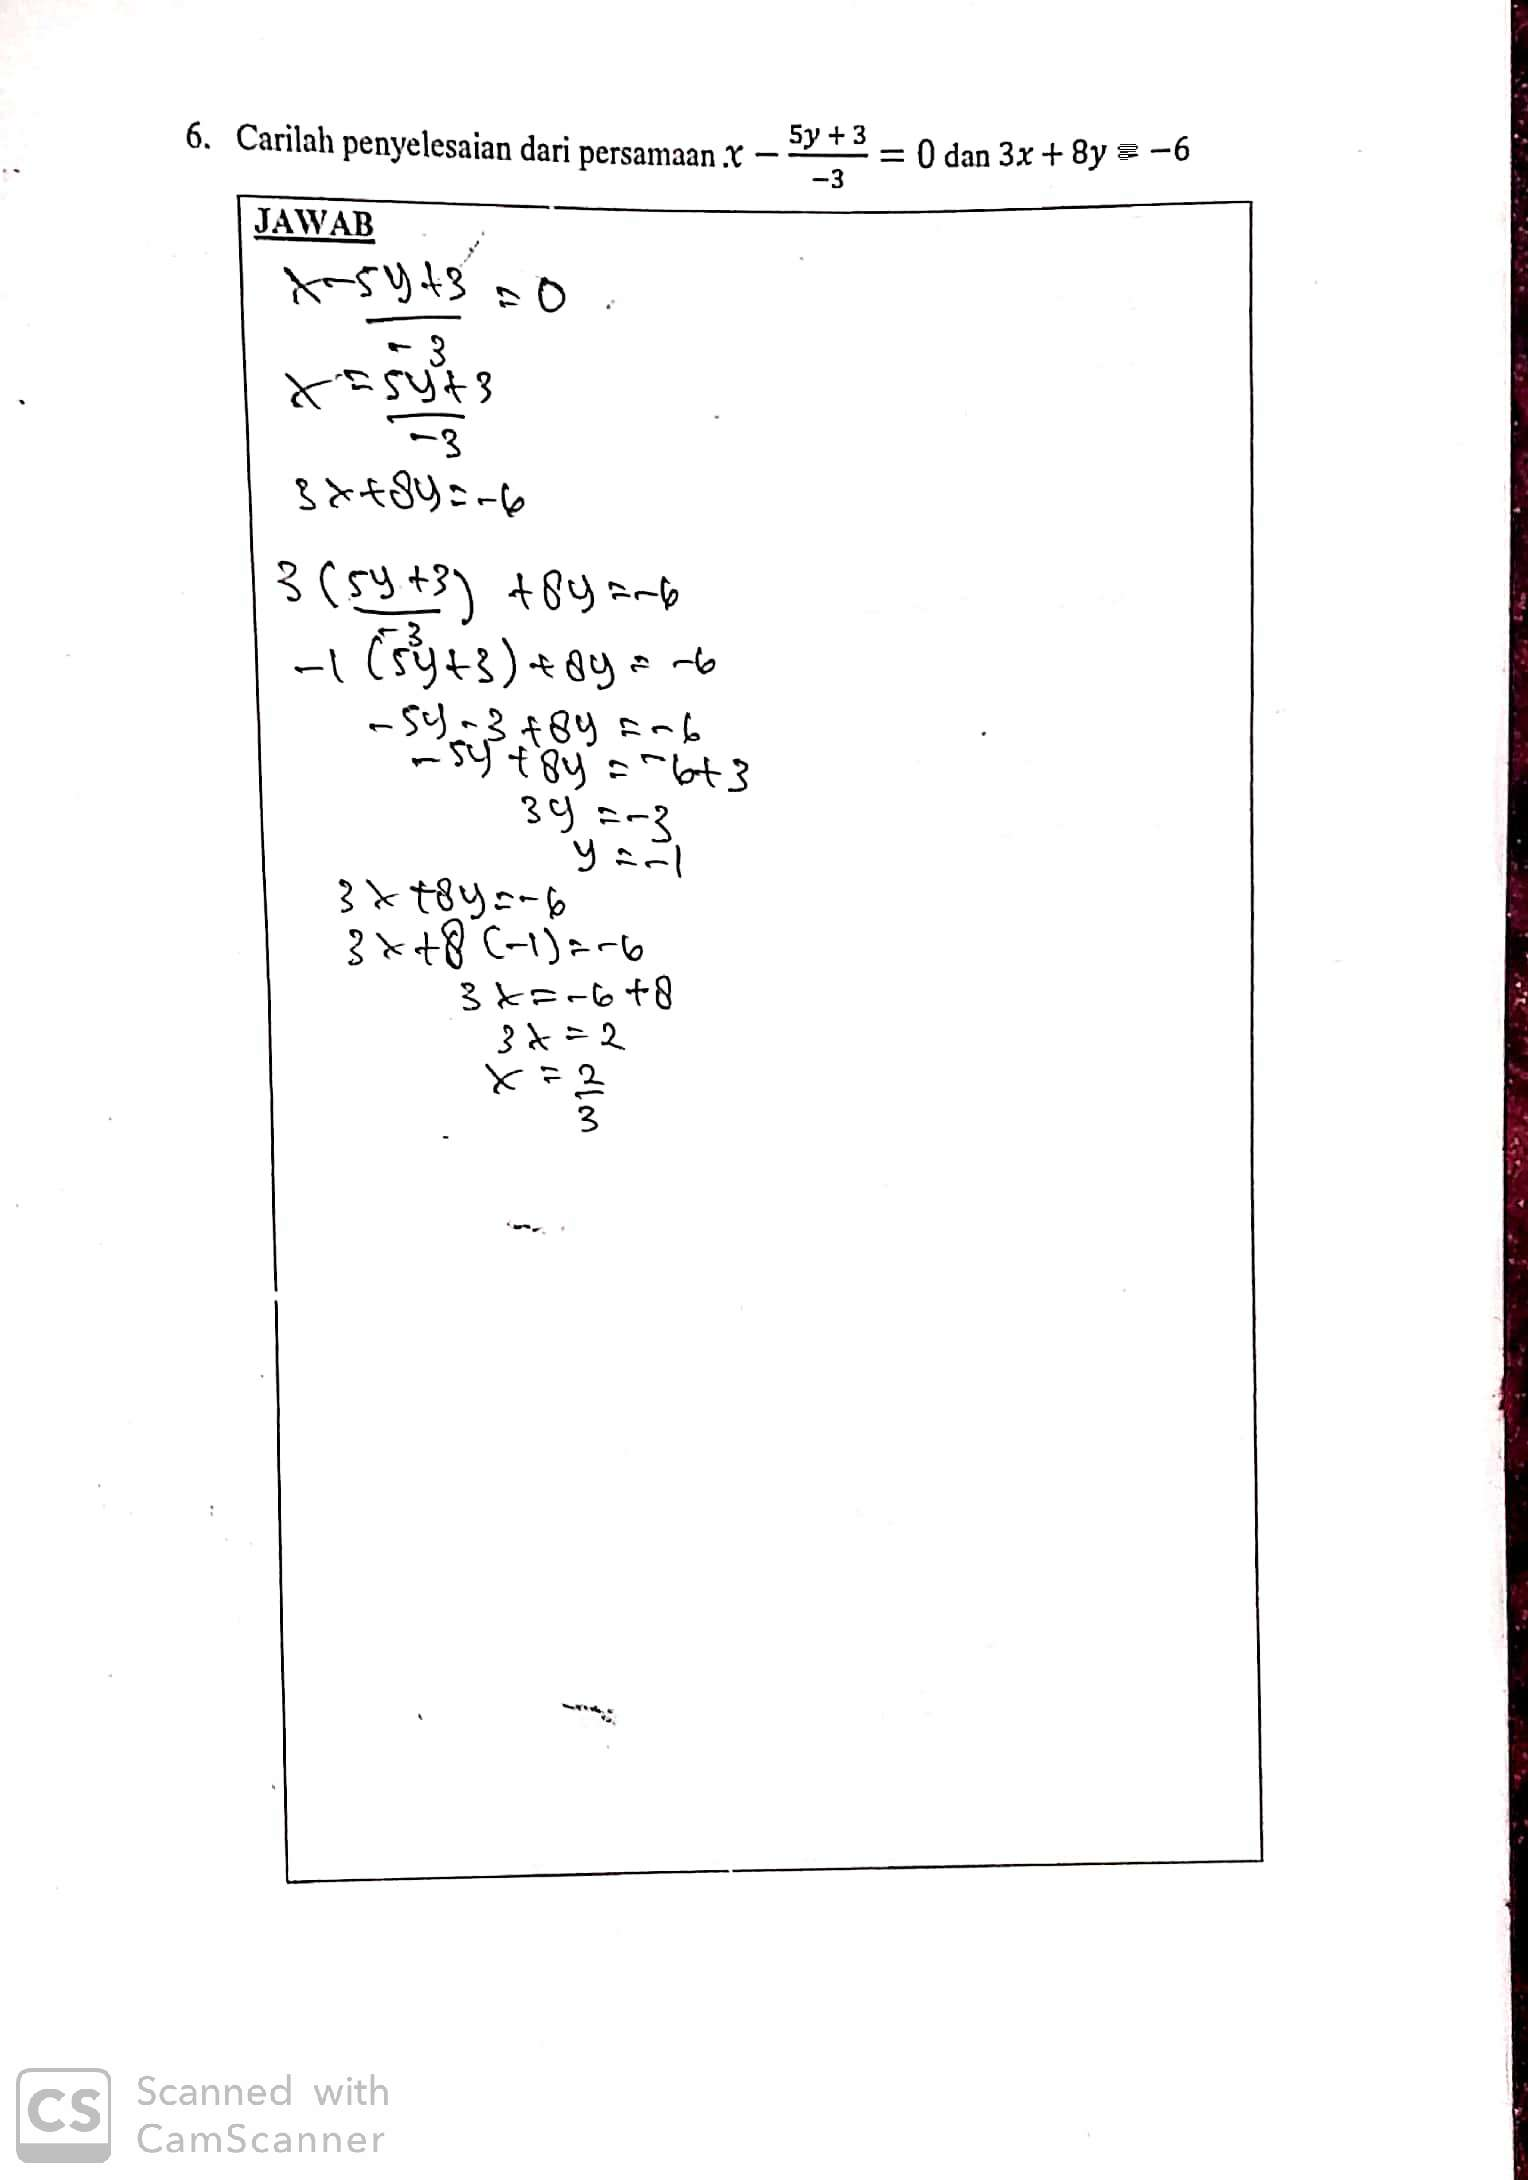 6. Carilah penyelesaian dari persamaan x − (5y + 3)/(−3) = 0 dan 3x + 8y = −6
JAWAB
x - 5y+3 = 0
-3
x = 5y+3
-3
3x+8y=-6
3 (5y+3) +8y=-6
-3
-1 (5y+3)+8y=-6
-5y-3+8y=-6
-5y+8y=-6+3
3y=-3
y=-1
3x+8y=-6
3x+8(-1)=-6
3x=-6+8
3x=2
x=2
3
CS Scanned with
CamScanner